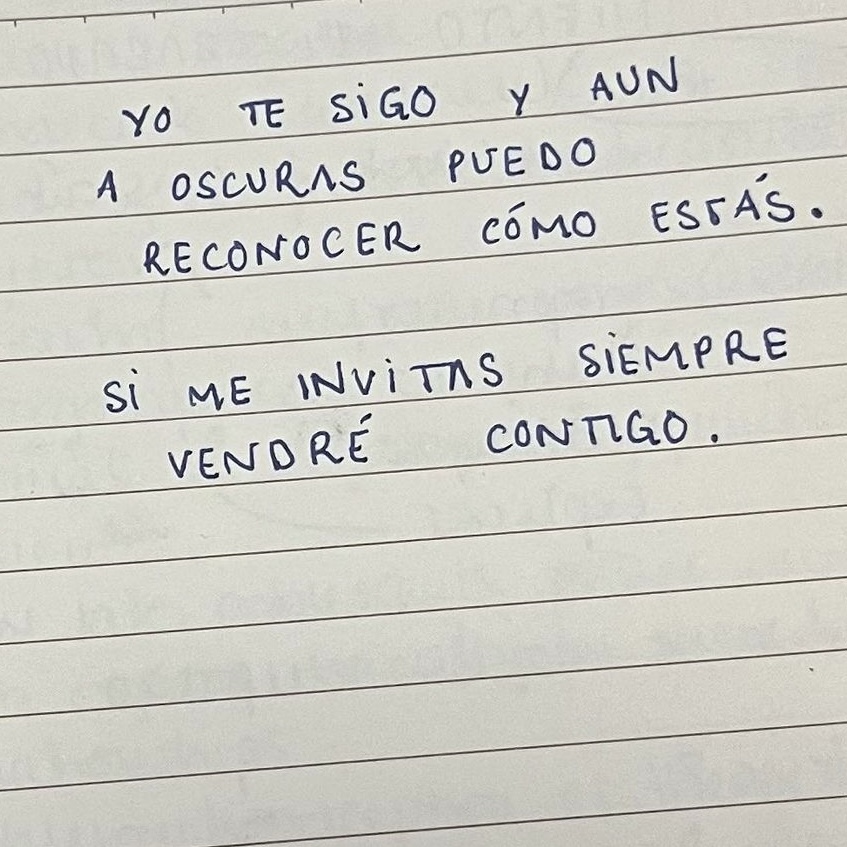 YO TE SiGO Y AUN
A OSCURAS PUEDO
RECONOCER CÓMO ESTÁS.
Si ME INViTAS SiEMPRE
VENDRÉ CONTIGO.